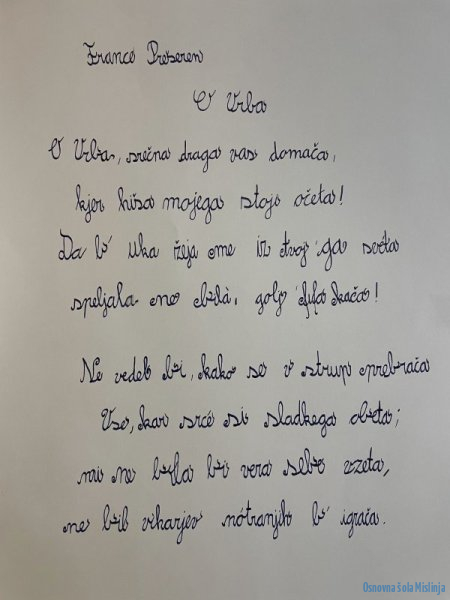 France Prešeren
O Vrba
O Vrba, srečna draga vas domača,
kjer hiša mojega stoji očeta!
Da b' uka žeja me iz tvoj'ga svéta
speljala ne bilà, golj'fiva kača!
Ne vedel bi, kako se v strup prebrača
Vse, kar srcé si sladkega obeta;
mi ne bila bi vera sebe vzeta,
ne bil viharjev nótranjih b' igrača.
Osnovna šola Mislinja